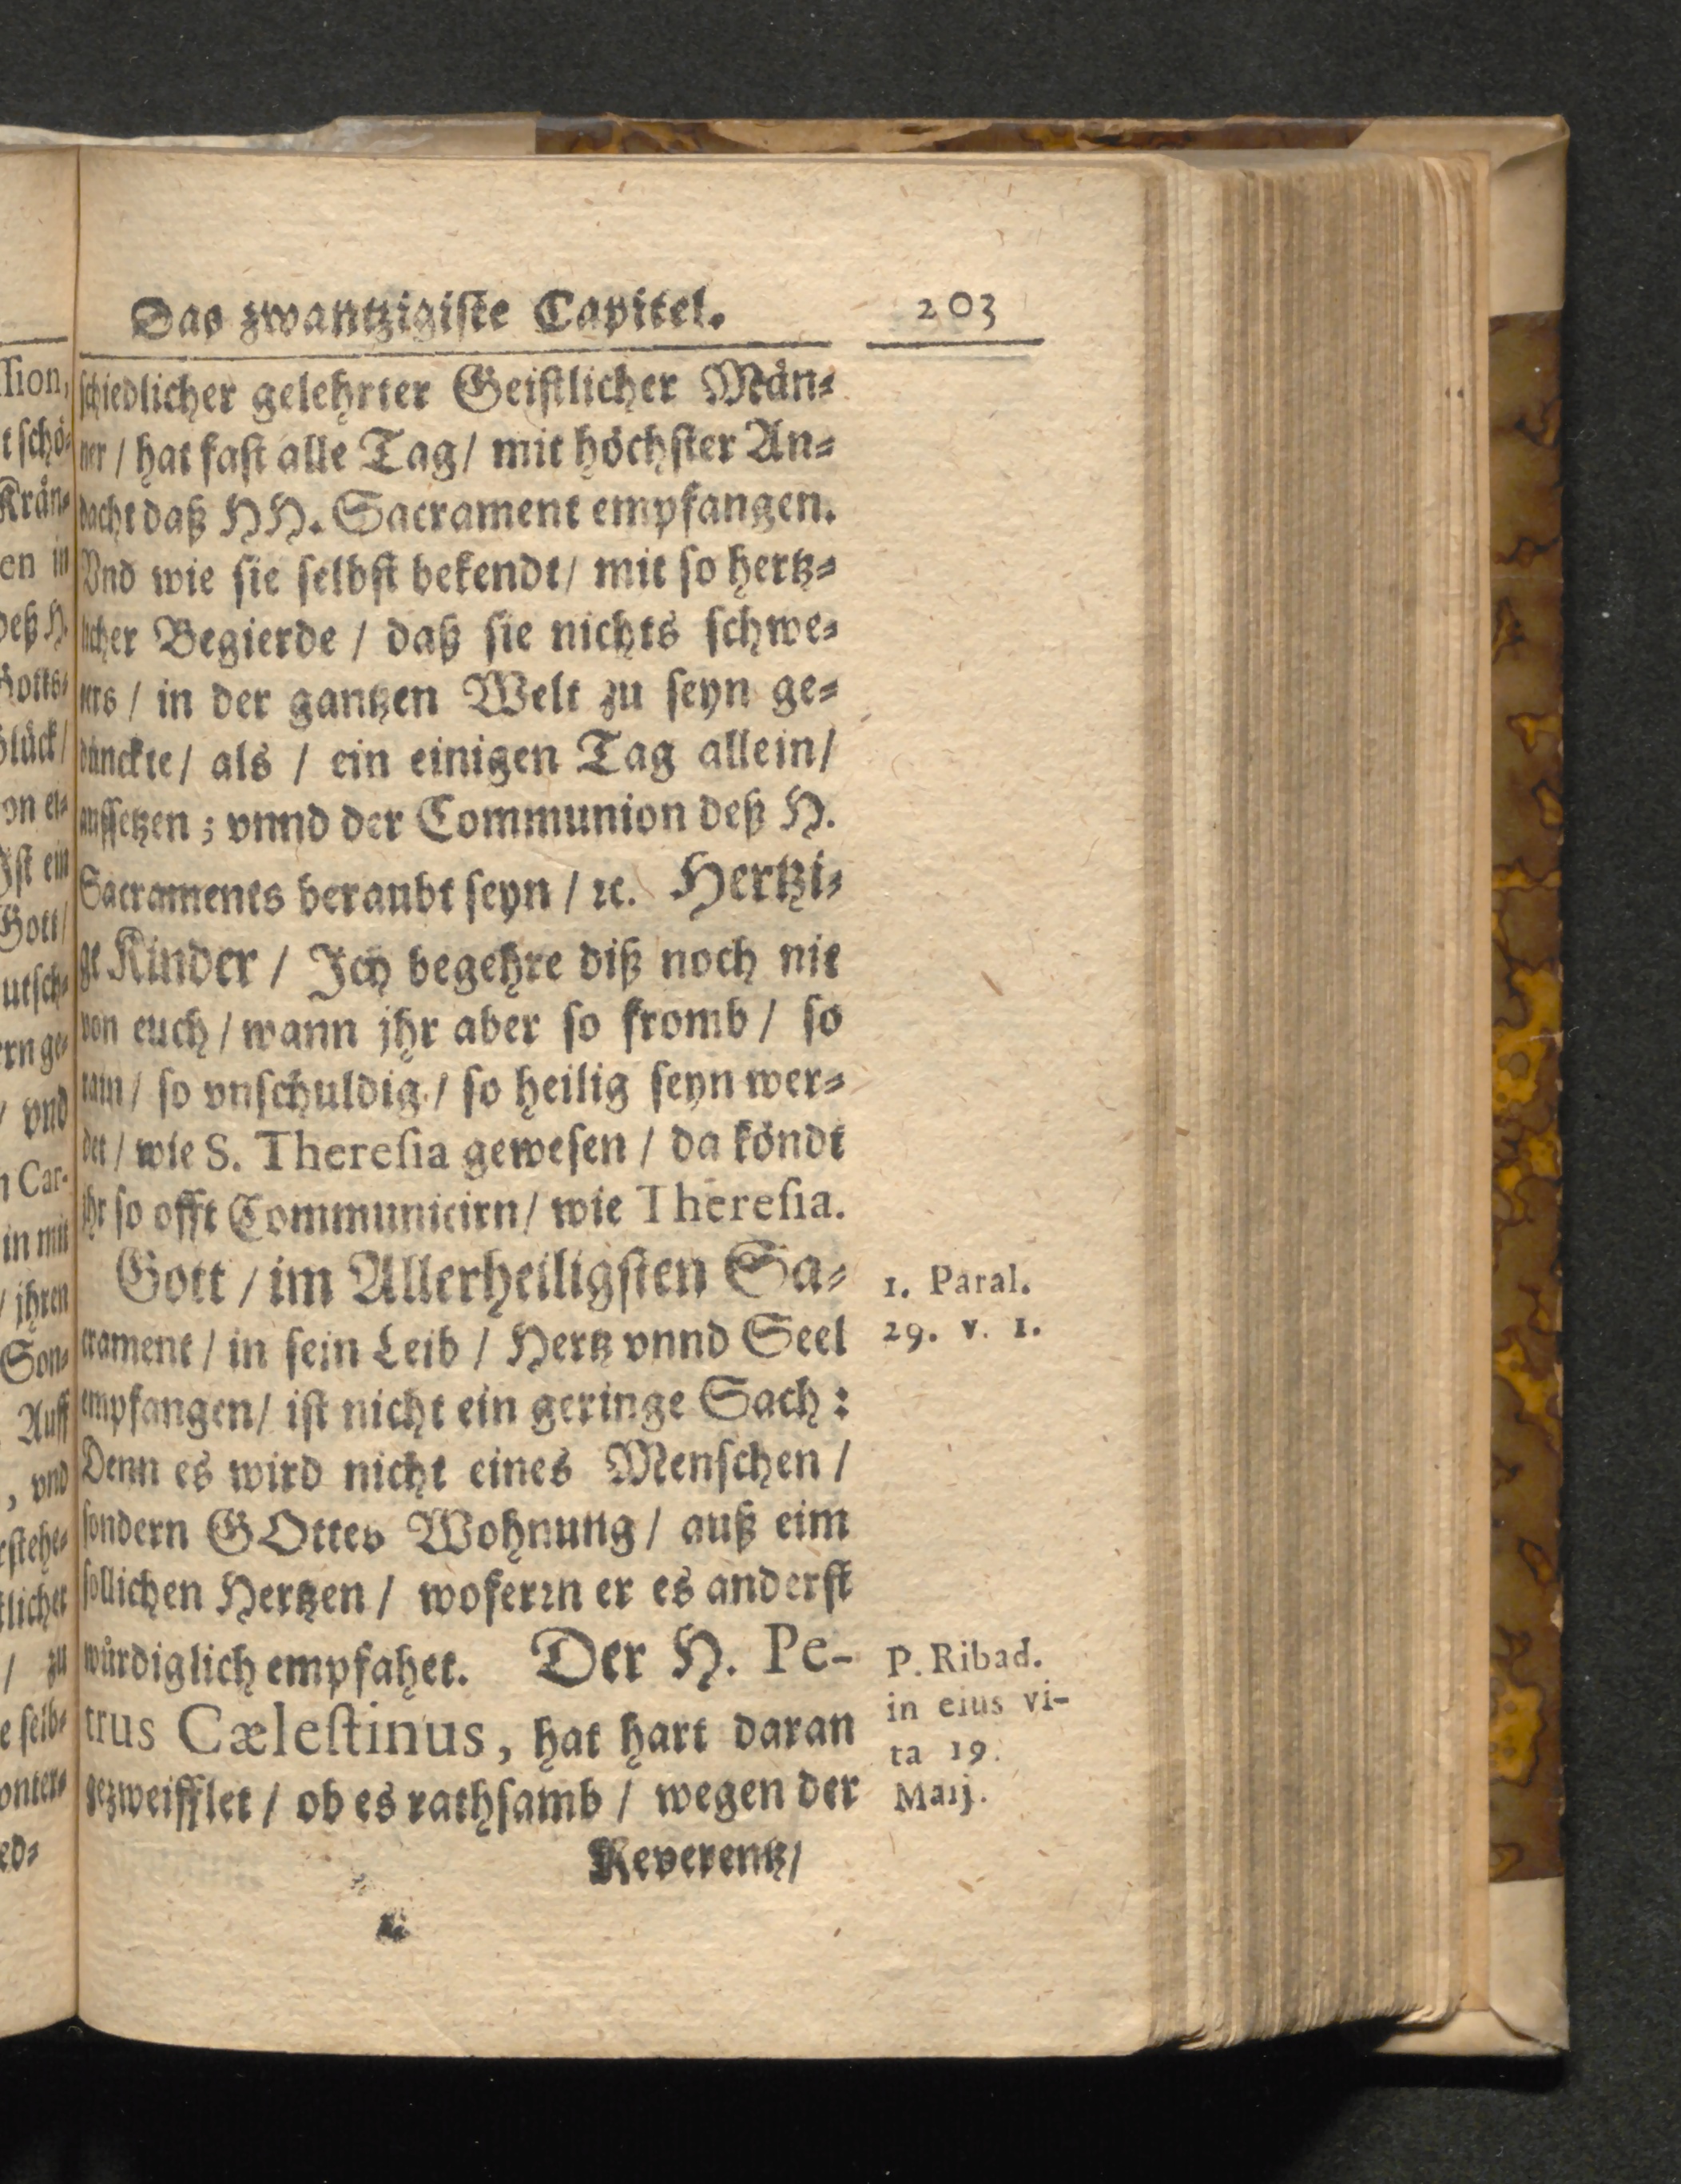 Das zwantzigiste Capitel. 203
schiedlicher gelehrter Geistlicher Män⸗
ner / hat fast alle Tag / mit höchster An⸗
dacht daß HH. Sacrament empfangen.
Vnd wie sie selbst bekendt / mit so hertz⸗
licher Begierde / daß sie nichts schwe⸗
rers / in der gantzen Welt zu seyn ge⸗
dünckte / als / ein einigen Tag allein /
aussetzen ; vnnd der Communion deß H.
Sacraments beraubt seyn / ꝛc. Hertzi⸗
ge Kinder / Ich begehre diß noch nit
von euch / wann jhr aber so fromb / so
rain / so vnschuldig / so heilig seyn wer⸗
det / wie S. Theresia gewesen / da köndt
jhr so offt Communicirn / wie Theresia.
Gott / im Allerheiligsten Sa⸗
crament / in sein Leib / Hertz vnnd Seel
empfangen / ist nicht ein geringe Sach :
Denn es wird nicht eines Menschen /
sondern GOttes Wohnung / auß eim
sollichen Hertzen / woferrn er es anderst
würdiglich empfahet. Der H. Pe-
trus Cælestinus, hat hart daran
gezweifflet / ob es rathsamb / wegen der
Reverentz /
1. Paral.
29. v. 1.
P. Ribad.
in eius vi-
ta 19.
Maij.